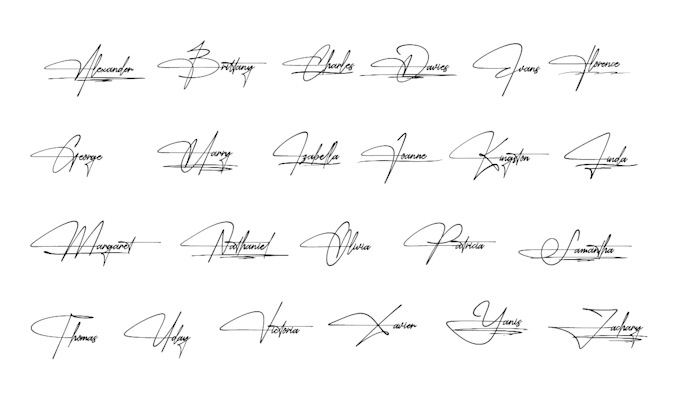 Alexander Brittany Charles Davies Evans Florence
George Harry Izabella Joanne Kingston Linda
Margaret Nathaniel Olivia Patricia Samantha
Thomas Uday Victoria Xavier Yanis Zachary